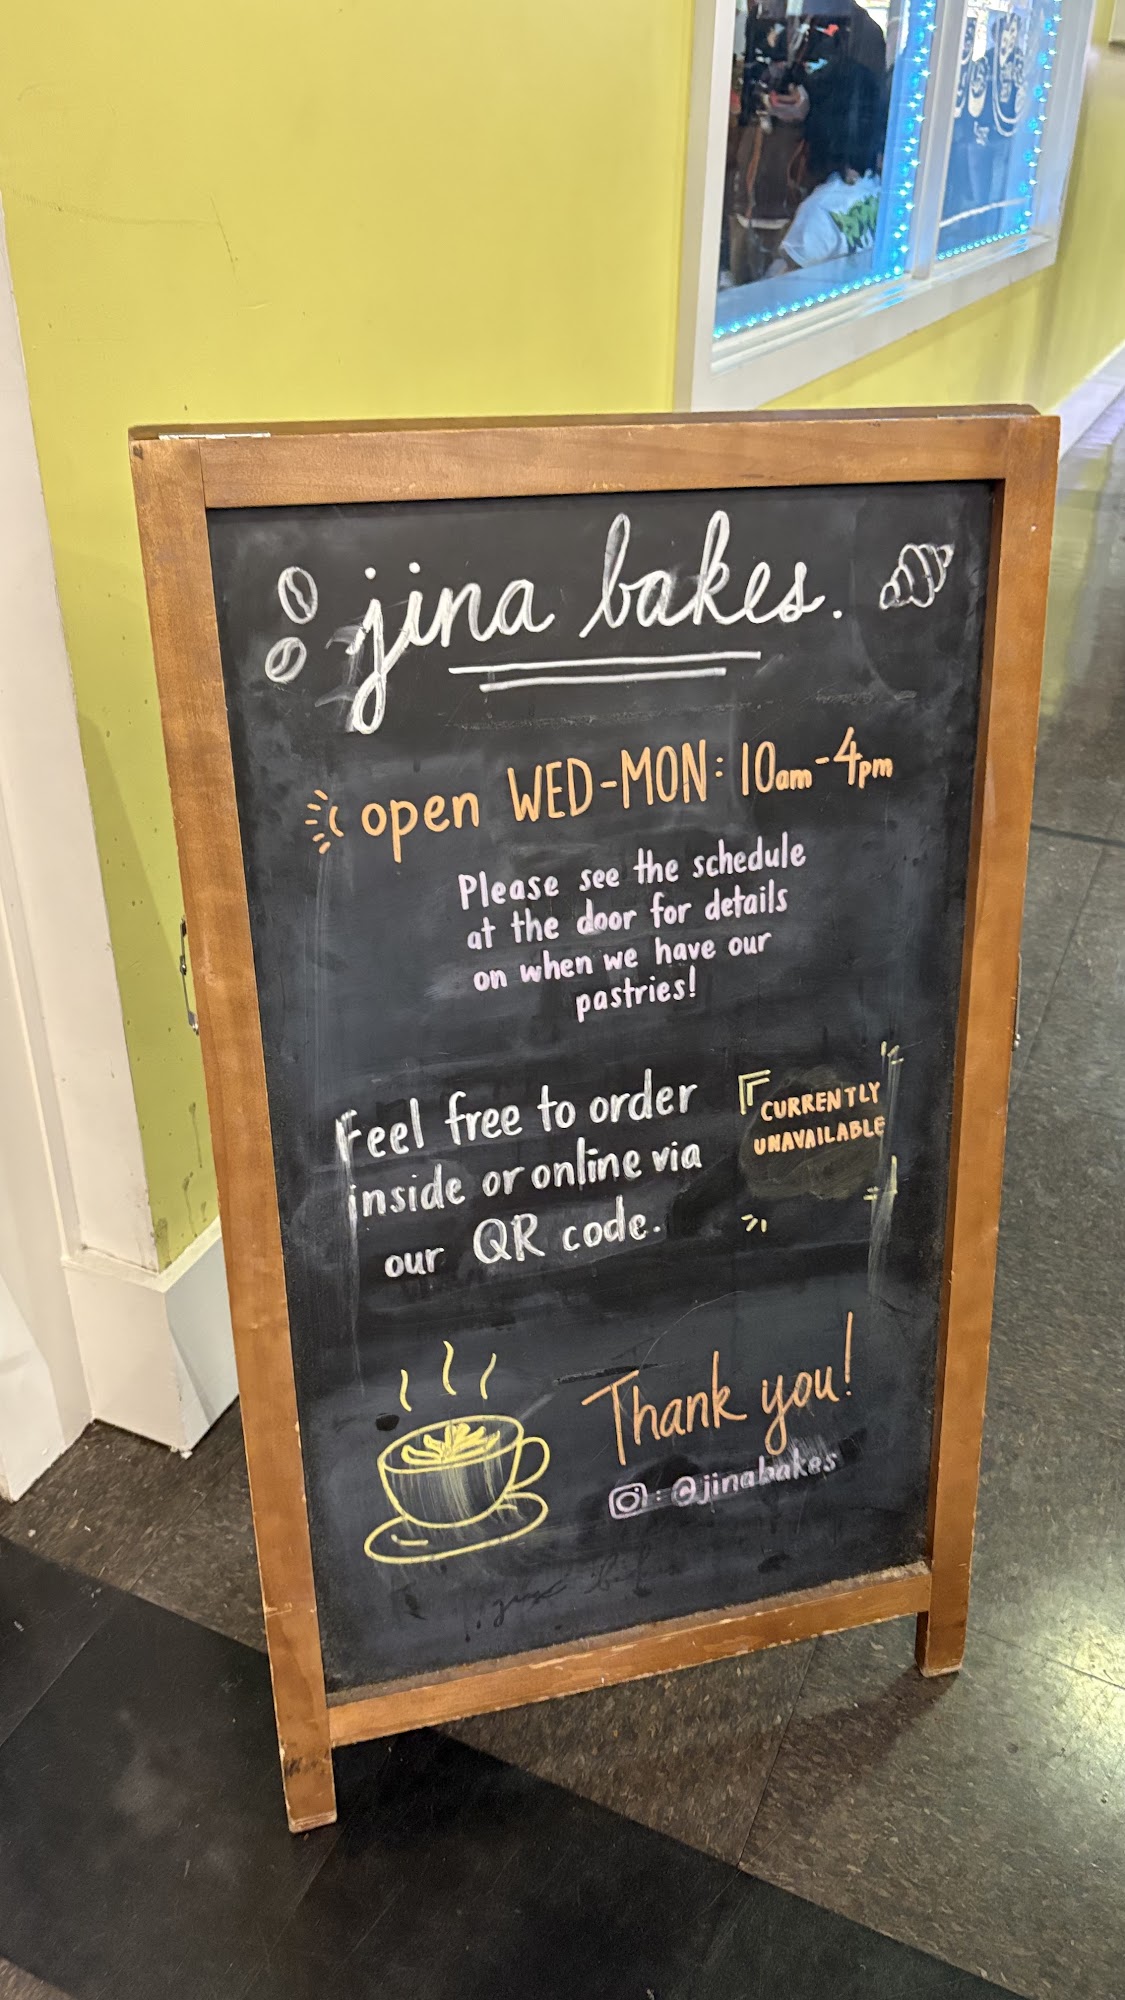 jina bakes.
open WED-MON: 10am-4pm
Please see the schedule
at the door for details
on when we have our
pastries!
Feel free to order
inside or online via
our QR code.
CURRENTLY
UNAVAILABLE
Thank you!
: @jinabakes